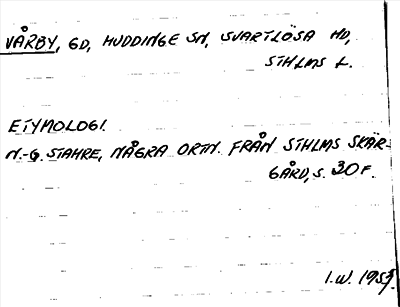 VÅRBY, GD, HUDDINGE SN, SVARTLÖSA HD,
STHLMS L.
ETYMOLOGI.
N.-G. STAHRE, NÅGRA ORTN. FRÅN STHLMS SKÄR-
GÅRD, S. 30 F.
I.W. 1953.